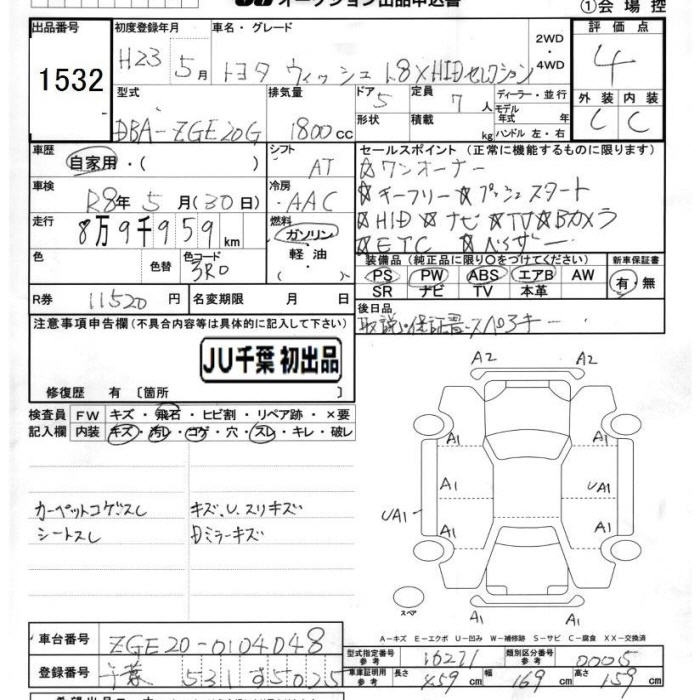 オークション出品申込書
①会場控
出品番号 初度登録年月 車名・グレード 評価点
1532 H23 5月 トヨタ ウィッシュ 1.8X HIDセレクション 2WD・4WD 4
型式 排気量 ドア 定員 ディーラー・並行 外装 内装
DBA-ZGE20G 1800cc 5 7人 モデル年式 年 C C
形状 積載 kg ハンドル 左・右
車歴 シフト セールスポイント (正常に機能するものに限ります)
自家用・( ) AT ☆ワンオーナー
車検 冷房 ☆キーフリー☆プッシュスタート
R8年5月(30日) AAC
走行 燃料 ☆HID☆ナビ☆TV☆Bカメラ
8万9千959km ガソリン ☆ETC☆バイザー
色 色替 色コード 軽油 装備品 (純正品に限り○をつけてください) 新車保証書
3R0 ( ) PS PW ABS エアB AW 有・無
SR ナビ TV 本革
R券 11520円 名変期限 月 日 後日品
取説・保証書・スペアキー
注意事項申告欄(不具合内容等は具体的に記入して下さい)
JU千葉 初出品
修復歴 有 〔箇所 〕
検査員 FW キズ・飛石・ヒビ割・リペア跡・×要
記入欄 内装 キズ・汚レ・コゲ・穴・スレ・キレ・破レ
カーペットコゲスレ キズ、U、スリキズ
シートスレ Dミラーキズ
A2 A2
A1 A1
A1 UA1
UA1
A1 A1
スペア
A-キズ E-エクボ U-凹み W-補修跡 S-サビ C-腐食 XX-交換済
車台番号 ZGE20-0104048
型式指定番号 参考 16231 類別区分番号 参考 0005
登録番号 千葉 531 す5025
車庫証明用 参考 長さ 459cm 幅 169cm 高さ 159cm